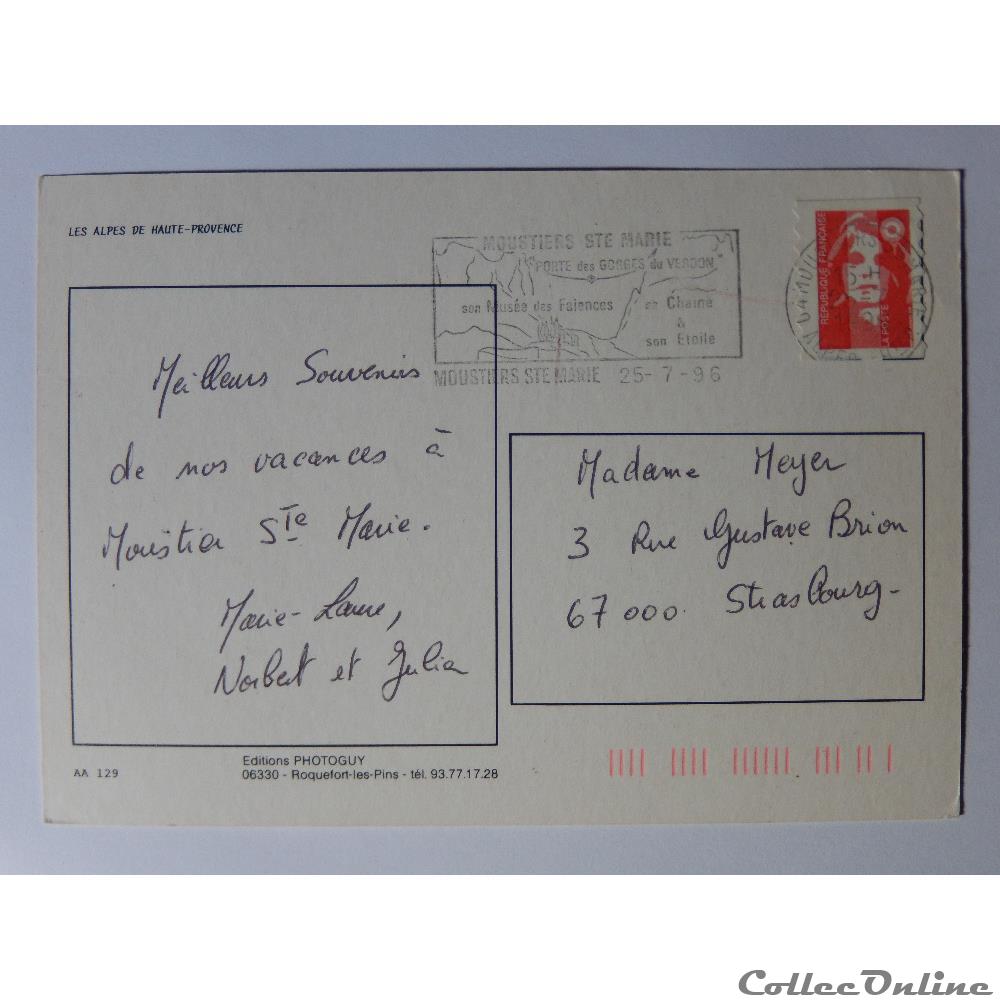 LES ALPES DE HAUTE-PROVENCE
MOUSTIERS STE MARIE
"PORTE des GORGES du VERDON"
son Musée des Faiences sa Chaine
&
son Etoile
MOUSTIERS STE MARIE 25-7-96
REPUBLIQUE FRANÇAISE
LA POSTE
Meilleurs Souvenirs
de nos vacances à
Moustier Ste Marie.
Marie-Laure,
Norbert et Julia
Madame Meyer
3 Rue Gustave Brion
67000. Strasbourg-
AA 129
Editions PHOTOGUY
06330 - Roquefort-les-Pins - tél. 93.77.17.28
CollecOnline